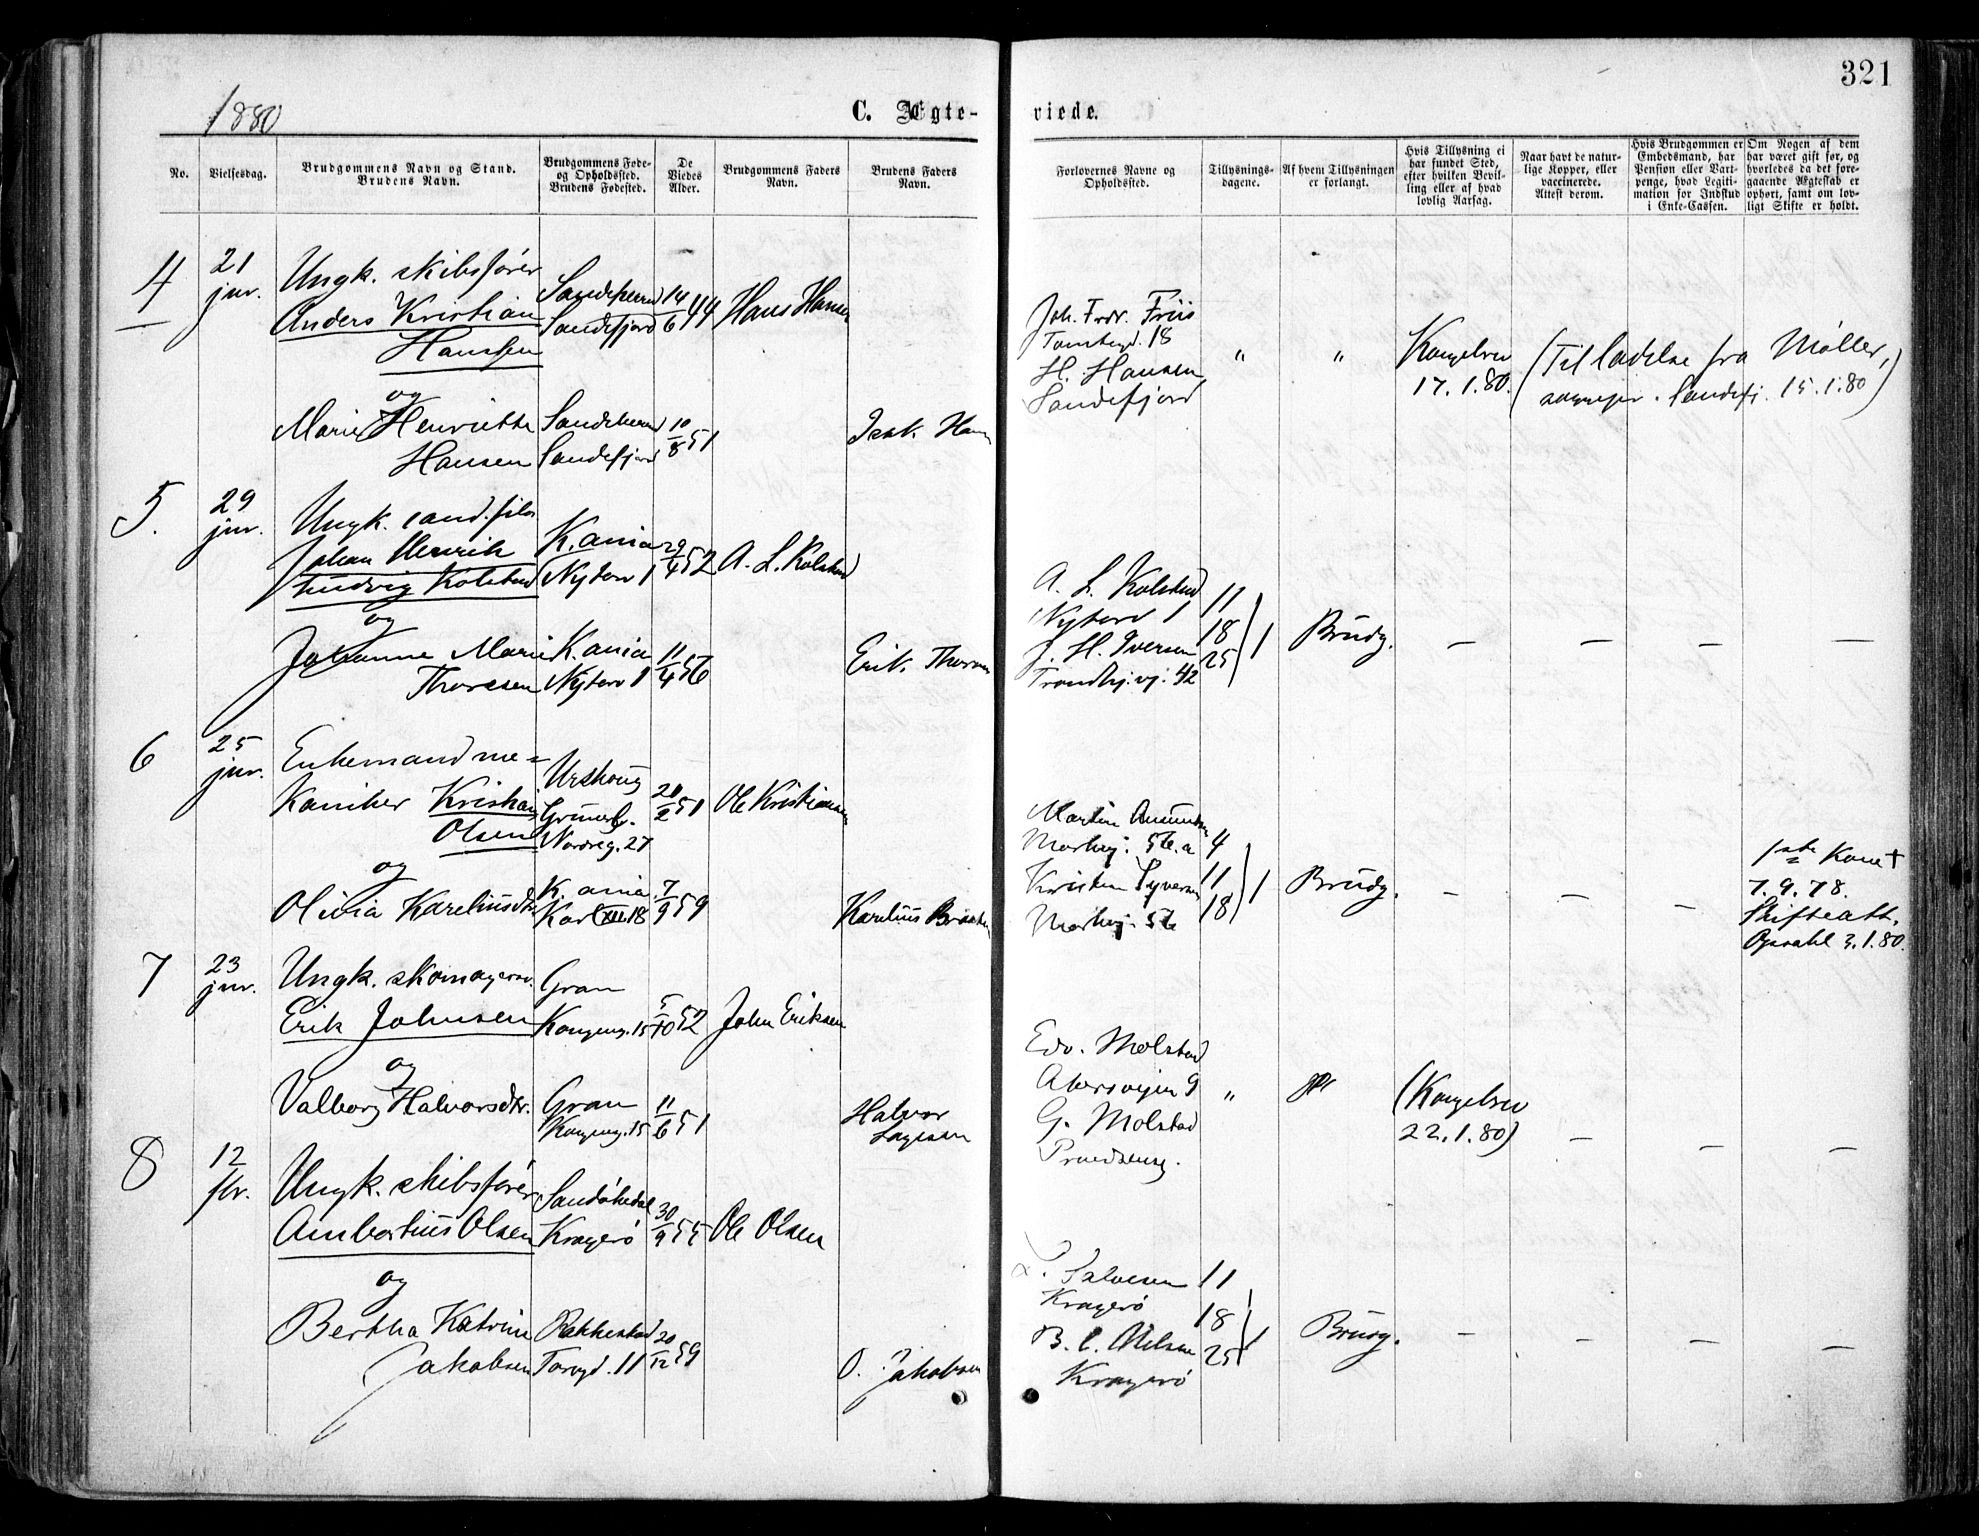 321
1880
C. Ægte-
viede.
No.
Vielsesdag.
Brudgommens Navn og Stand.
Brudens Navn.
Brudgommens Føde-
og Opholdssted.
Brudens Fødested.
De
Viedes
Alder.
Brudgommens Faders
Navn.
Brudens Faders
Navn.
Forlovernes Navne og
Opholdssted.
Tillysnings-
dagene.
Af hvem Tillysningen
er forlangt.
Hvis Tillysning ei
har fundet Sted,
efter hvilken Bevil-
ling eller af hvad
lovlig Aarsag.
Naar havt de natur-
lige Kopper, eller
vaccinerede.
Attest derom.
Hvis Brudgommen er
Embedsmand, har
Pension eller Vart-
penge, hvad Legiti-
mation for Indskud
i Enke-Cassen.
Om Nogen af dem
har været gift før, og
hvorledes da det fore-
gaaende Ægteskab er
ophørt, samt om lov-
ligt Skifte er holdt.
4
21
jnr.
Ungk. skibsfører
Anders Kristian
Hanssen
Sandeherred
Sandefjord
14/6 44
Hans Hansen
Joh. Fredr. Friis
18
H. Hansen
Sandefjord
" "
Kongebrev
17.1.80.
(Tilladelse fra Møller,
Sandefj. 15.1.80)
og
Marie Henriette
Hansen
Sandeherred
Sandefjord
10/8 51
Isak Hansen
5.
29
jnr.
Ungk. cand. filos
Johan Henrik
Ludvig Kolstad
K.ania
Nytorv 1
29/4 52
A. L. Kolstad
A. L. Kolstad
Nytorv 1
J. H. Iversen
Trondhj.vj. 42
11
18
25
1
Brudg.
— — — —
og
Johanne Marie
Thoresen
K.ania
Nytorv 1
11/4 56
Erik Thoresen
6
25
jnr.
Enkemand me-
kaniker Kristian
Olsen
Urskoug
Grünerl.
Nordreg. 27
20/2 51
Ole Kristiansen
Martin
56.a
Kristen Syversen
56
4
11
18
1
Brudg.
— — —
1ste Kone †
7.9.78.
Skifteatt.
3.1.80.
og
Olivia Kareliusdtr.
K.ania
Karl XII. 18
7/9 59
Karelius
7
23
jnr.
Ungk. skomagersv.
Erik Johnsen
Gran
Kongensg. 15
5/10 52
John Eriksen
Edv. Molstad
Akersvejen 9
G. Molstad
"
(Kongebrev
22.1.80)
— — —
og
Valborg Halvorsdtr.
Gran
Kongensg. 15
11/6 51
Halvor
8
12
fbr.
Ungk. skibsfører
Ambortius Olsen
Sandøkedal
Kragerø
30/9 55
Ole Olsen
Salvesen
Kragerø
B. C. Nielsen
Kragerø
11
18
25
1
Brudg.
— — — —
og
Bertha Katrine
Jakobsen
Rakkestad
Torvgd. 11
20/12 59
O. Jakobsen